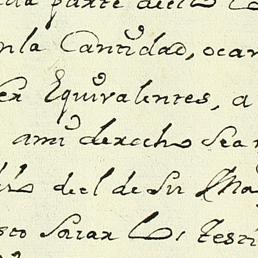 parte
enla Cantidad, ocan
Equivalentes, a
ami derecho sea
del de Su Ma
sacar Los testi